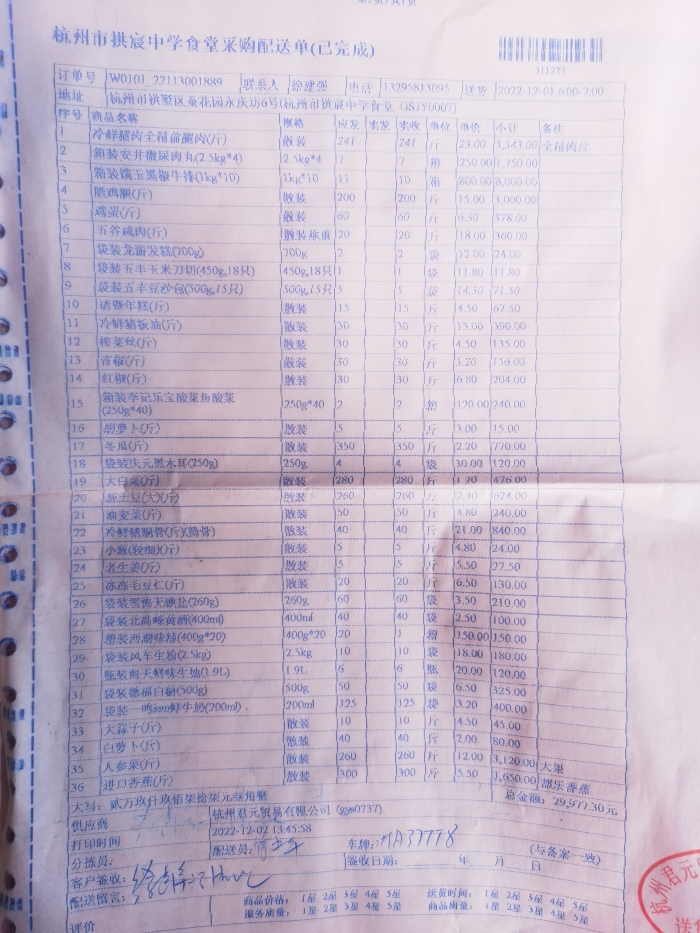 杭州市拱宸中学食堂采购配送单(已完成)
311277
订单号 W0101_22113001889 联系人 徐建强 电话 13295813095 送货 2022-12-01 6:00-7:00
地址 杭州市拱墅区蚕花园永庆坊6号(杭州市拱宸中学食堂 (JSJY0007)
序号 商品名称 规格 应发 实发 实收 单位 单价 小计 备注
1 冷鲜猪肉全精前腿肉(斤) 散装 241 241 斤 23.00 5,543.00 全精肉片
2 箱装安井撒尿肉丸(2.5kg*4) 2.5kg*4 7 7 箱 250.00 1,750.00
3 箱装 玉黑椒牛排(1kg*10) 1kg*10 10 箱 800.00 8,000.00
4 腊鸡腿(斤) 散装 200 200 斤 15.00 3,000.00
5 鸡蛋(斤) 散装 60 60 斤 6.30 378.00
6 五谷咸肉(斤) 散装称重 20 20 斤 18.00 360.00
7 袋装龙游发糕(700g) 700g 2 2 袋 12.00 24.00
8 袋装五丰玉米刀切(450g,18只) 450g,18只 1 1 袋 11.80 11.80
9 袋装五丰豆沙包(500g,15只) 500g,15只 5 5 袋 14.30 71.50
10 诸暨年糕(斤) 散装 15 15 斤 4.50 67.50
11 冷鲜猪板油(斤) 散装 30 30 斤 13.00 390.00
12 榨菜丝(斤) 散装 30 30 斤 4.50 135.00
13 青椒(斤) 散装 30 30 斤 5.20 156.00
14 红椒(斤) 散装 30 30 斤 6.80 204.00
15 箱装李记乐宝酸菜鱼酸菜 250g*40 2 2 箱 120.00 240.00
(250g*40)
16 胡萝卜(斤) 散装 5 5 斤 3.00 15.00
17 冬瓜(斤) 散装 350 350 斤 2.20 770.00
18 袋装庆元黑木耳(250g) 250g 4 4 袋 30.00 120.00
19 大白菜(斤) 散装 280 280 斤 1.70 476.00
20 新土豆(大)(斤) 散装 260 260 斤 2.40 624.00
21 油麦菜(斤) 散装 50 50 斤 4.80 240.00
22 冷鲜猪脚骨(斤)(筒骨) 散装 40 40 斤 21.00 840.00
23 小葱(较细)(斤) 散装 5 5 斤 4.80 24.00
24 老生姜(斤) 散装 5 5 斤 5.50 27.50
25 冻冻毛豆仁(斤) 散装 20 20 斤 6.50 130.00
26 袋装雪涛天碘盐(260g) 260g 60 60 袋 3.50 210.00
27 袋装北高峰黄酒(400ml) 400ml 40 40 袋 2.50 100.00
28 箱装西湖味精(400g*20) 400g*20 20 1 箱 150.00 150.00
29 袋装风车生粉(2.5kg) 2.5kg 10 10 袋 18.00 180.00
30 瓶装海天鲜味生抽(1.9L) 1.9L 6 6 瓶 20.00 120.00
31 袋装德福白糖(500g) 500g 50 50 袋 6.50 325.00
32 袋装一鸣mm鲜牛奶(200ml) 200ml 125 125 袋 3.20 400.00
33 大蒜子(斤) 散装 10 10 斤 4.50 45.00
34 白萝卜(斤) 散装 40 40 斤 2.00 80.00
35 人参果(斤) 散装 260 260 斤 12.00 3,120.00 大果
36 进口香蕉(斤) 散装 300 300 斤 5.50 1,650.00 都乐香蕉
大写: 贰万玖仟玖佰柒拾柒元叁角整 总金额: 29,977.30元
供应商 杭州君元贸易有限公司 (gys0737)
打印时间 2022-12-02 13:45:58
分拣员: 配送员: 车牌: (与备案一致)
客户签收: 签收日期: 年 月 日
配送留言: 商品价格: 1星 2星 3星 4星 5星 送货时间: 1星 2星 3星 4星 5星
评价 服务质量: 1星 2星 3星 4星 5星 商品质量: 1星 2星 3星 4星 5星
杭州君元